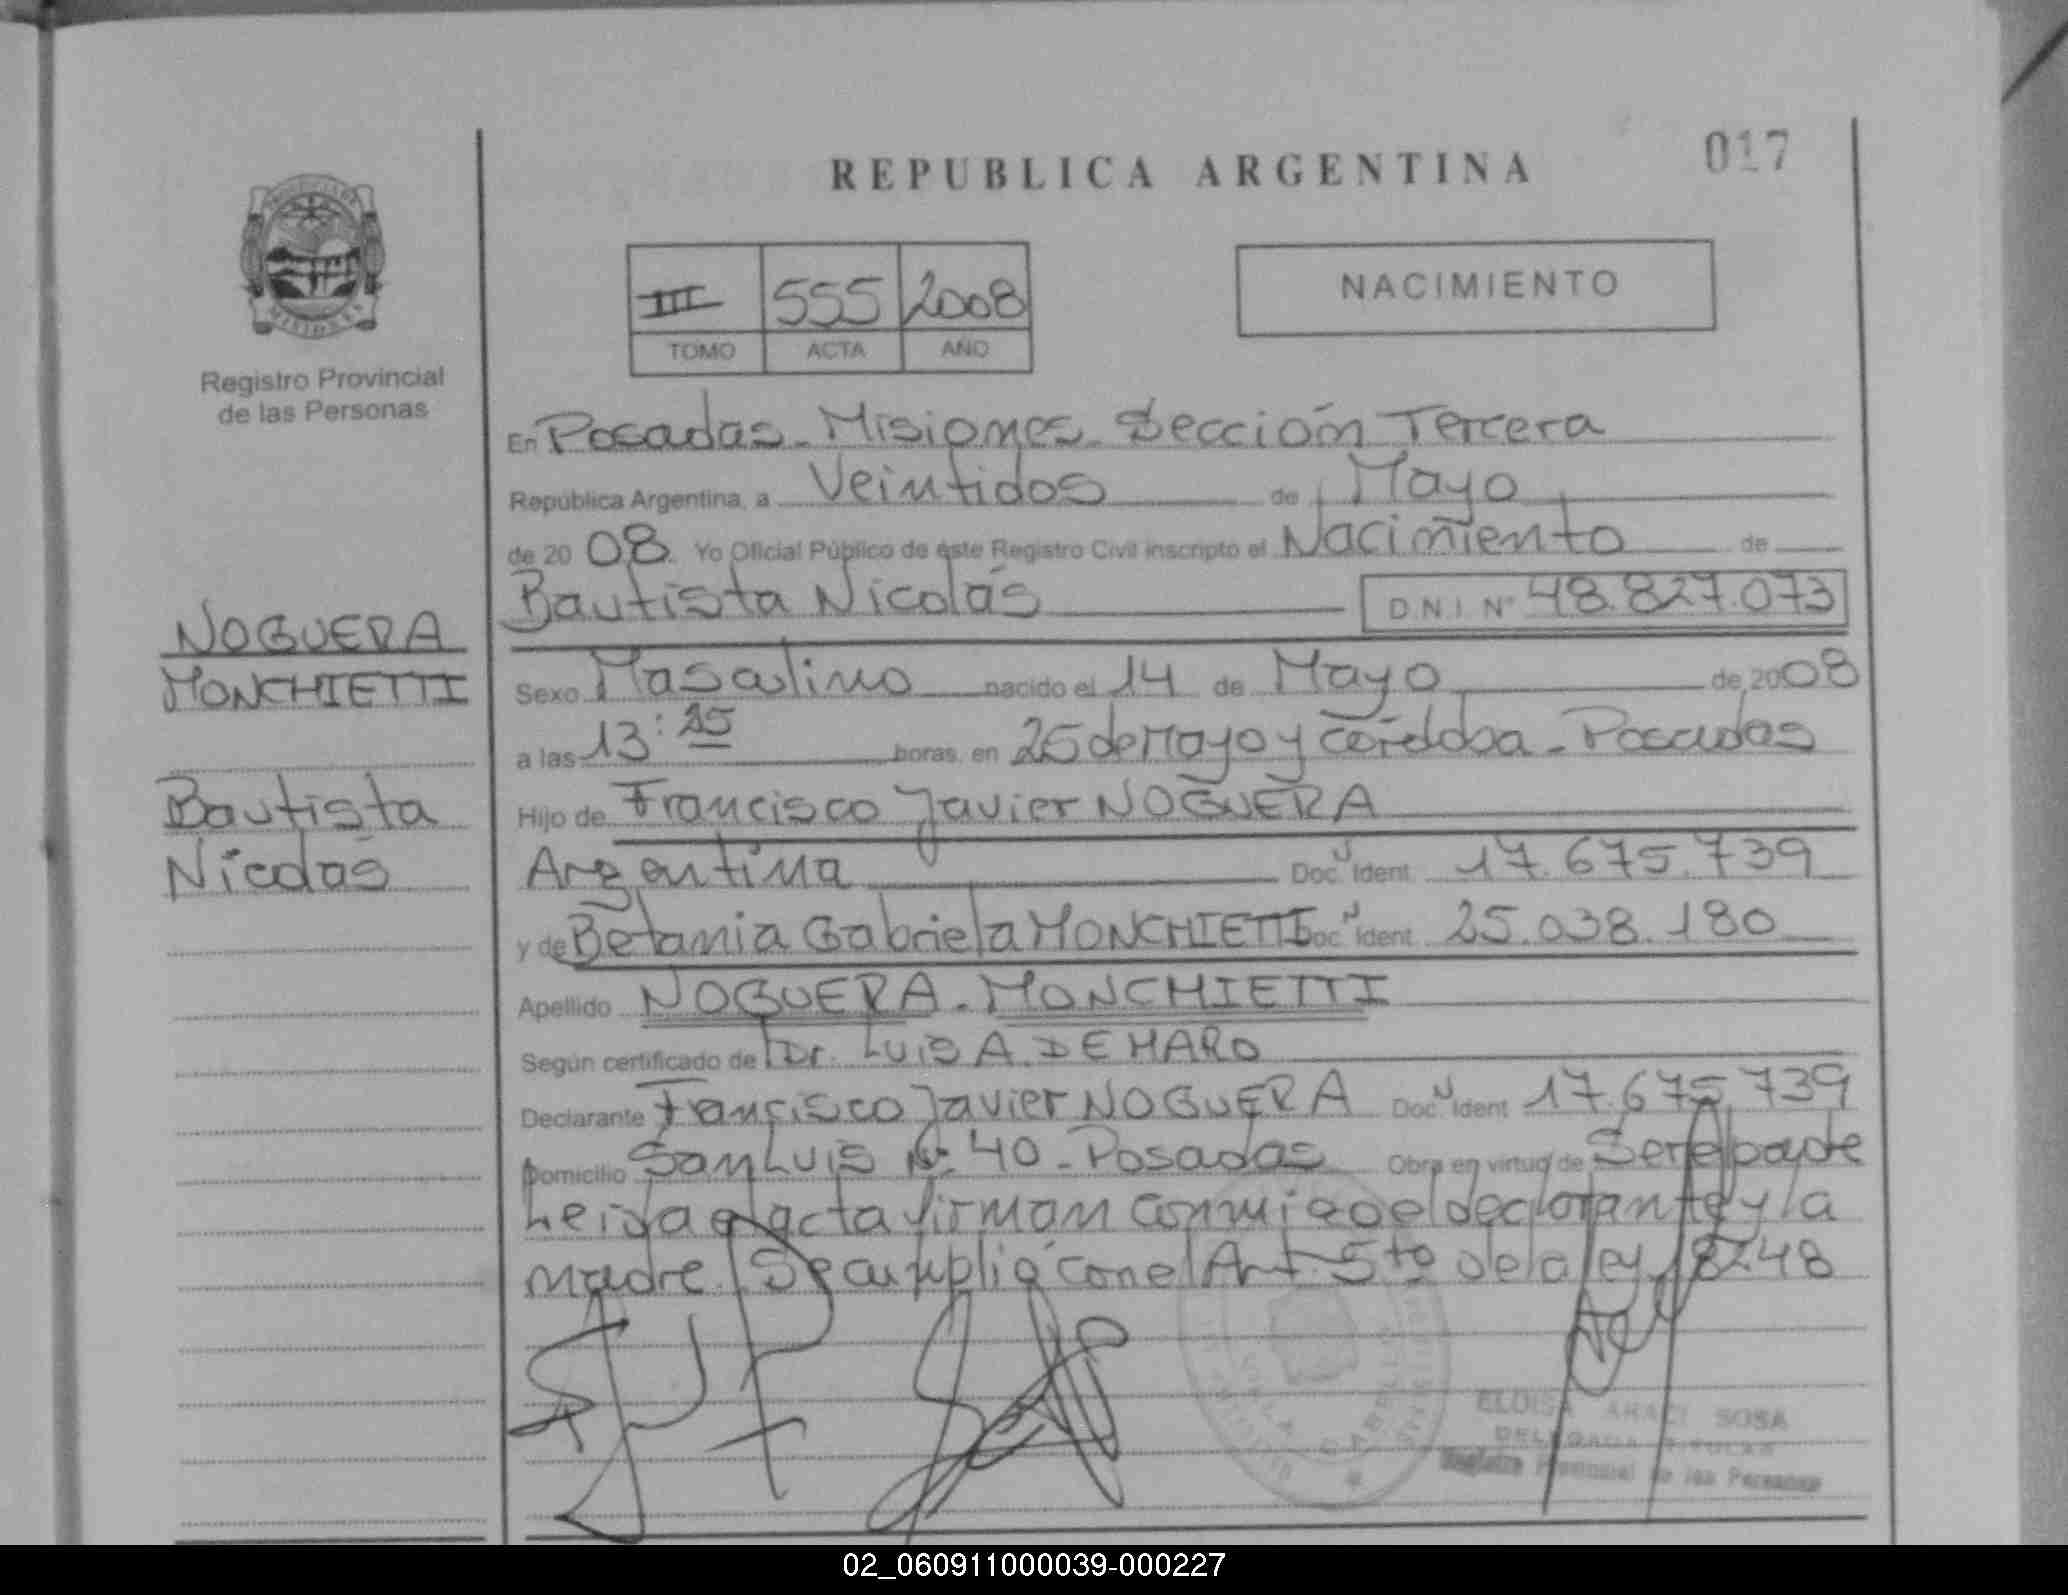 017
REPUBLICA ARGENTINA
MISIONES
Registro Provincial
de las Personas
III 555 2008
TOMO ACTA AÑO
NACIMIENTO
En Posadas - Misiones - Sección Tercera
República Argentina, a Veintidos de Mayo
de 20 08. Yo Oficial Público de este Registro Civil inscripto el Nacimiento de
Bautista Nicolás D.N.I. Nº 48.827.073
NOGUERA
MONCHIETTI
Bautista
Nicolás
Sexo Masculino nacido el 14 de Mayo de 2008
a las 13:25 horas, en 25 de Mayo y Córdoba - Posadas
Hijo de Francisco Javier NOGUERA
Argentina Doc. Ident. 17.675.739
y de Betania Gabriela MONCHIETTI Doc. Ident. 25.038.180
Apellido NOGUERA - MONCHIETTI
Según certificado de Dr. LUIS A. DEMARO
Declarante Francisco Javier NOGUERA Doc. Ident 17.675.739
Domicilio San Luis Nº 40 - Posadas Obra en virtud de Ser el padre
Leida el acta firman conmigo el declarante y la
madre. Se cumplió con el Art. 5to de la ley 18248
ELOISA ARACI SOSA
DELEGADA TITULAR
Registro Provincial de las Personas
02_060911000039-000227